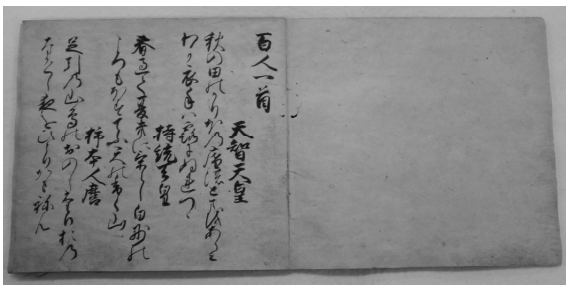 百人一首
天智天皇
秋の田のかりほの庵のとまをあらみ
わか衣手ハ露にぬれつゝ
持統天皇
春過て夏来にけらし白妙の
ころもほすてふ天のかく山
柿本人麿
足引の山鳥のおのしたりおの
なか〳〵し夜をひとりかもねん